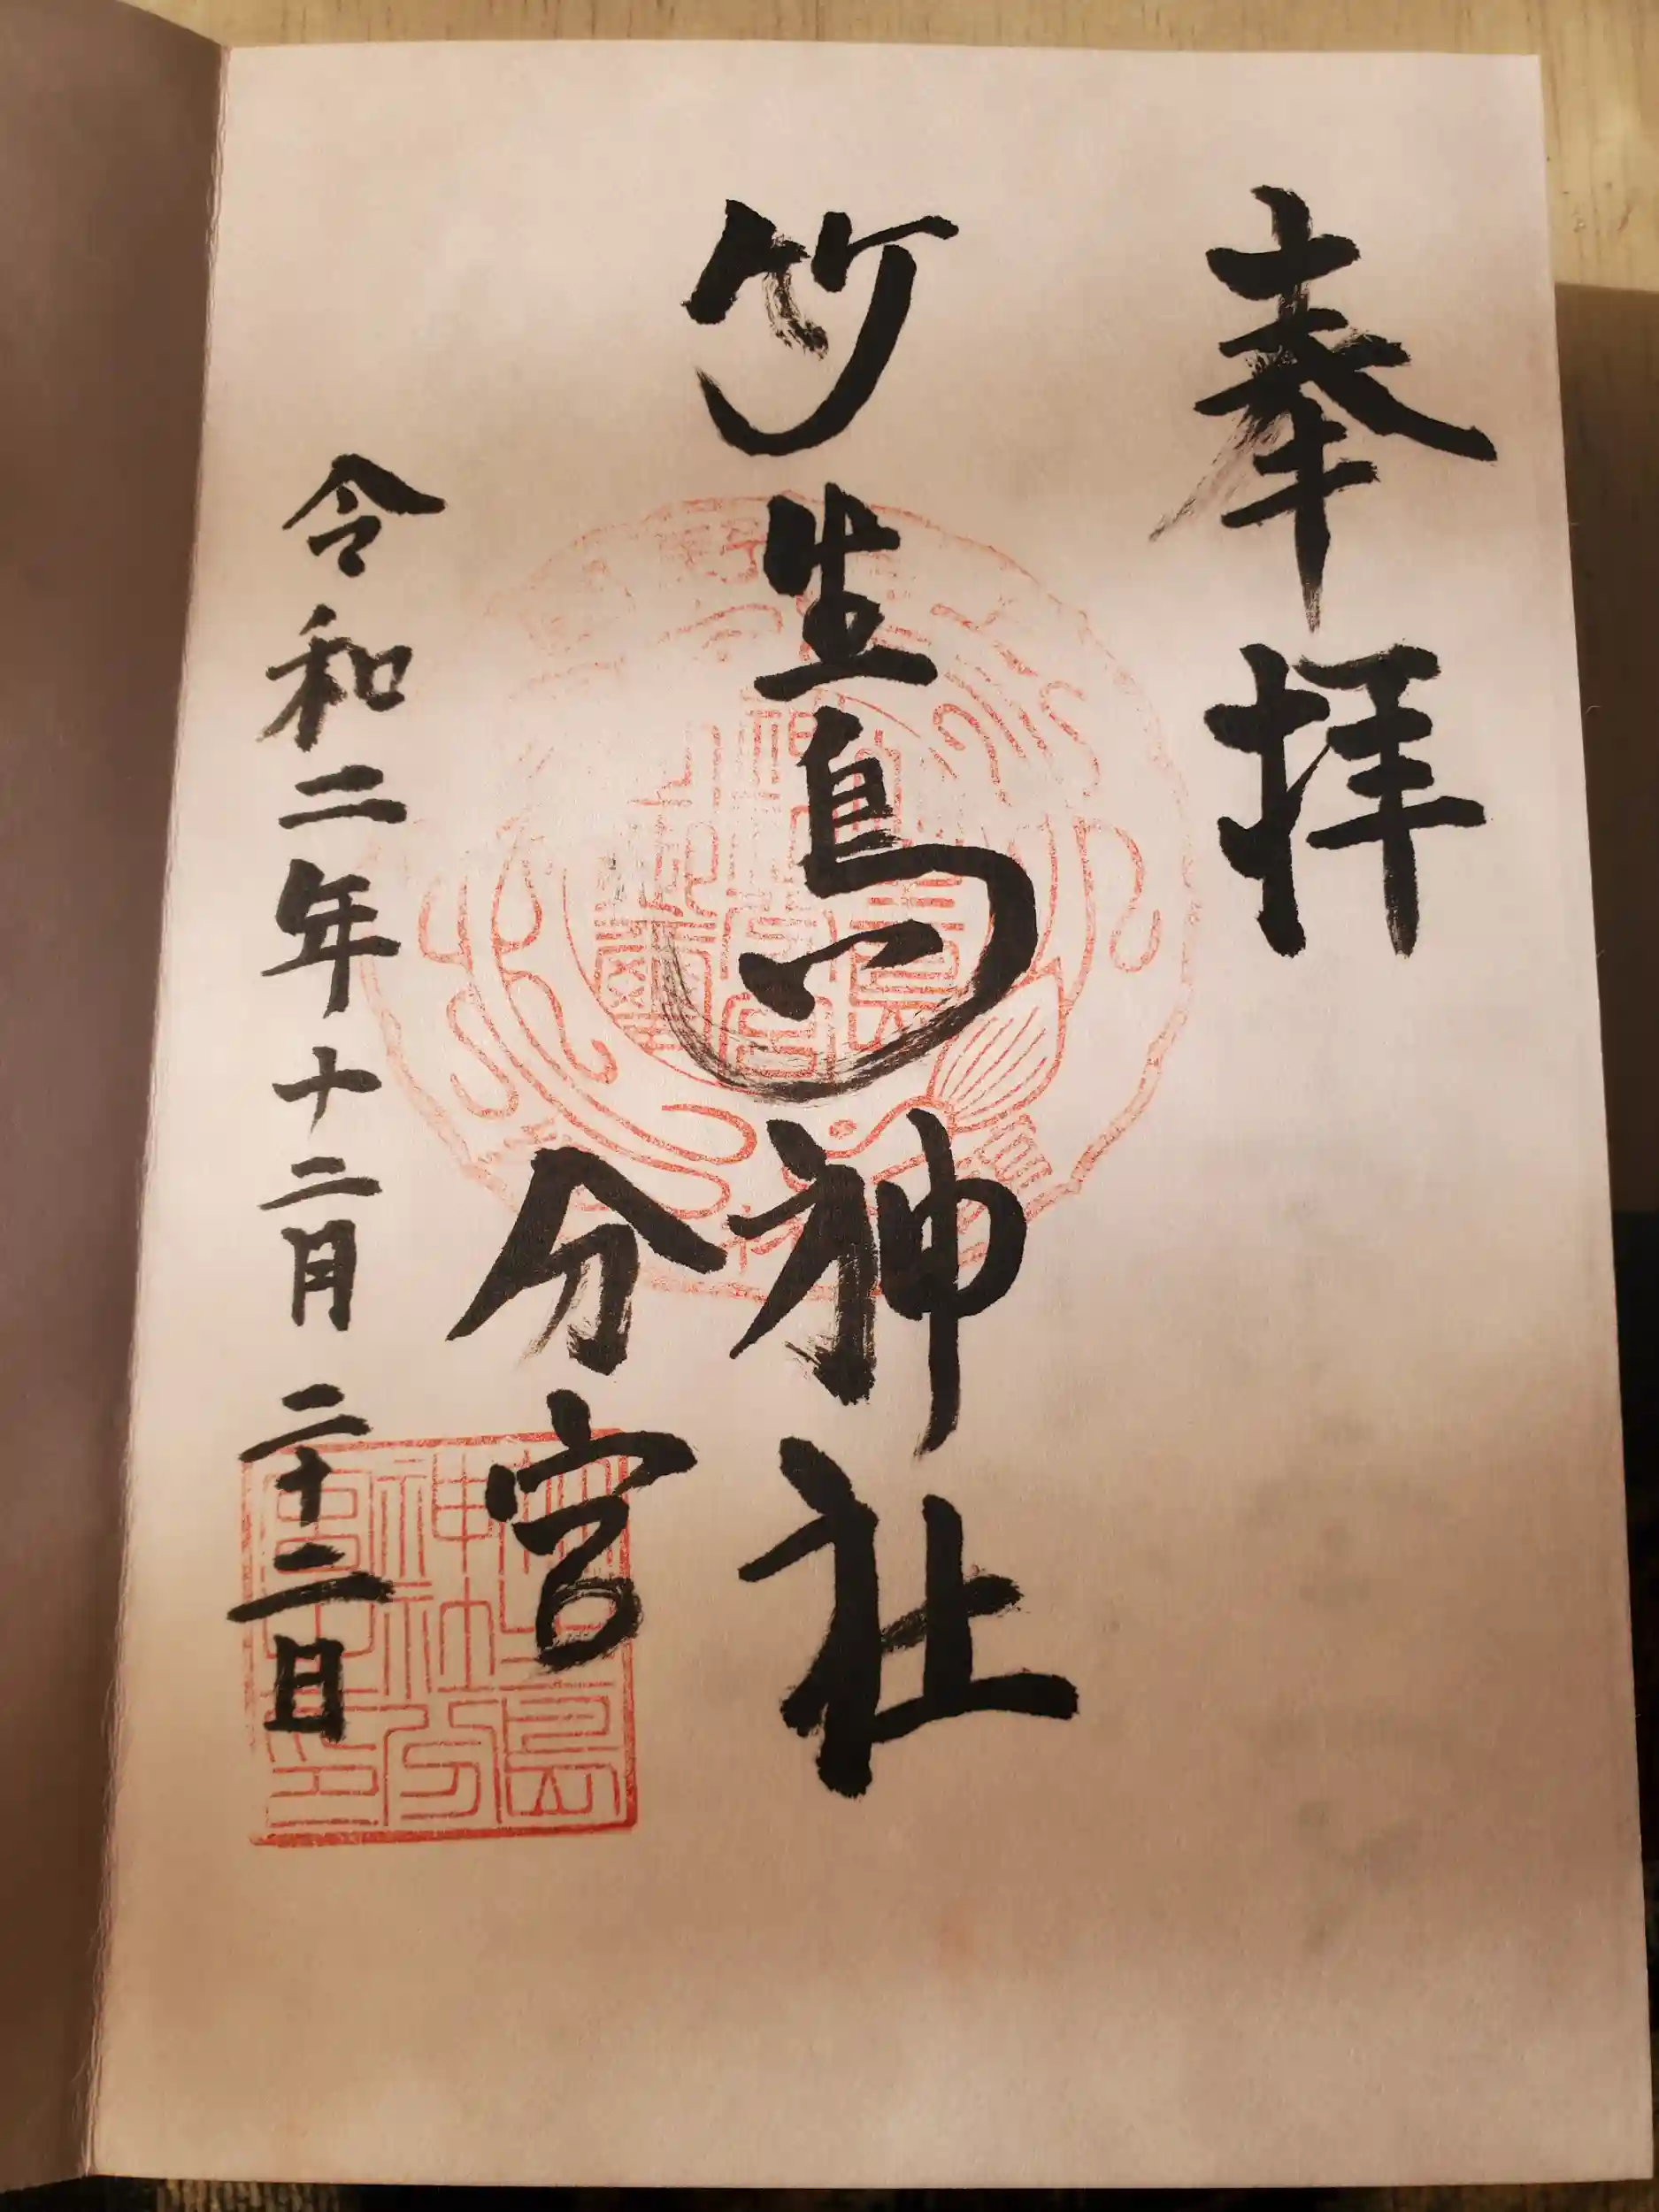 奉拝
竹生島神社
分宮
令和二年十二月二十二日